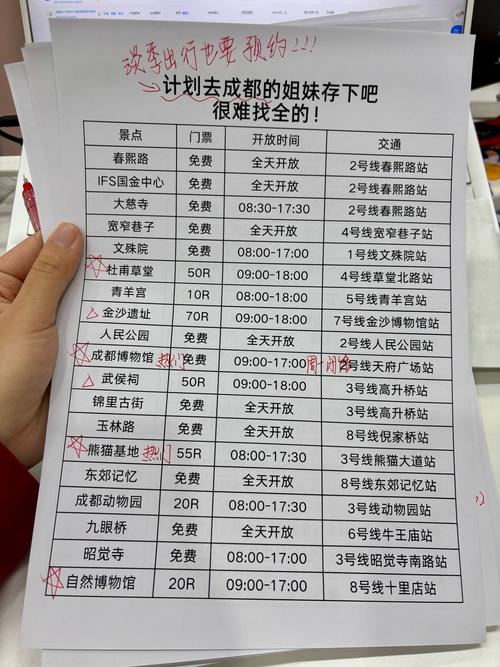 淡季出行也要预约!!!
计划去成都的姐妹存下吧
很难找全的!
景点 门票 开放时间 交通
春熙路 免费 全天开放 2号线春熙路站
IFS国金中心 免费 全天开放 2号线春熙路站
大慈寺 免费 08:30-17:30 2号线春熙路站
宽窄巷子 免费 全天开放 4号线宽窄巷子站
文殊院 免费 08:00-17:00 1号线文殊院站
杜甫草堂 50R 09:00-18:00 4号线草堂北路站
青羊宫 10R 08:00-18:00 5号线青羊宫站
金沙遗址 70R 09:00-18:00 7号线金沙博物馆站
人民公园 免费 全天开放 2号线人民公园站
成都博物馆 热门 免费 09:00-17:00 周一闭馆 号线天府广场站
武侯祠 50R 09:00-18:00 3号线高升桥站
锦里古街 免费 全天开放 3号线高升桥站
玉林路 免费 全天开放 8号线倪家桥站
熊猫基地 热门 55R 08:00-17:30 3号线熊猫大道站
东郊记忆 免费 全天开放 8号线东郊记忆站
成都动物园 20R 08:00-17:30 3号线动物园站
九眼桥 免费 全天开放 6号线牛王庙站
昭觉寺 免费 08:00-17:00 3号线昭觉寺南路站
自然博物馆 20R 09:00-17:00 8号线十里店站